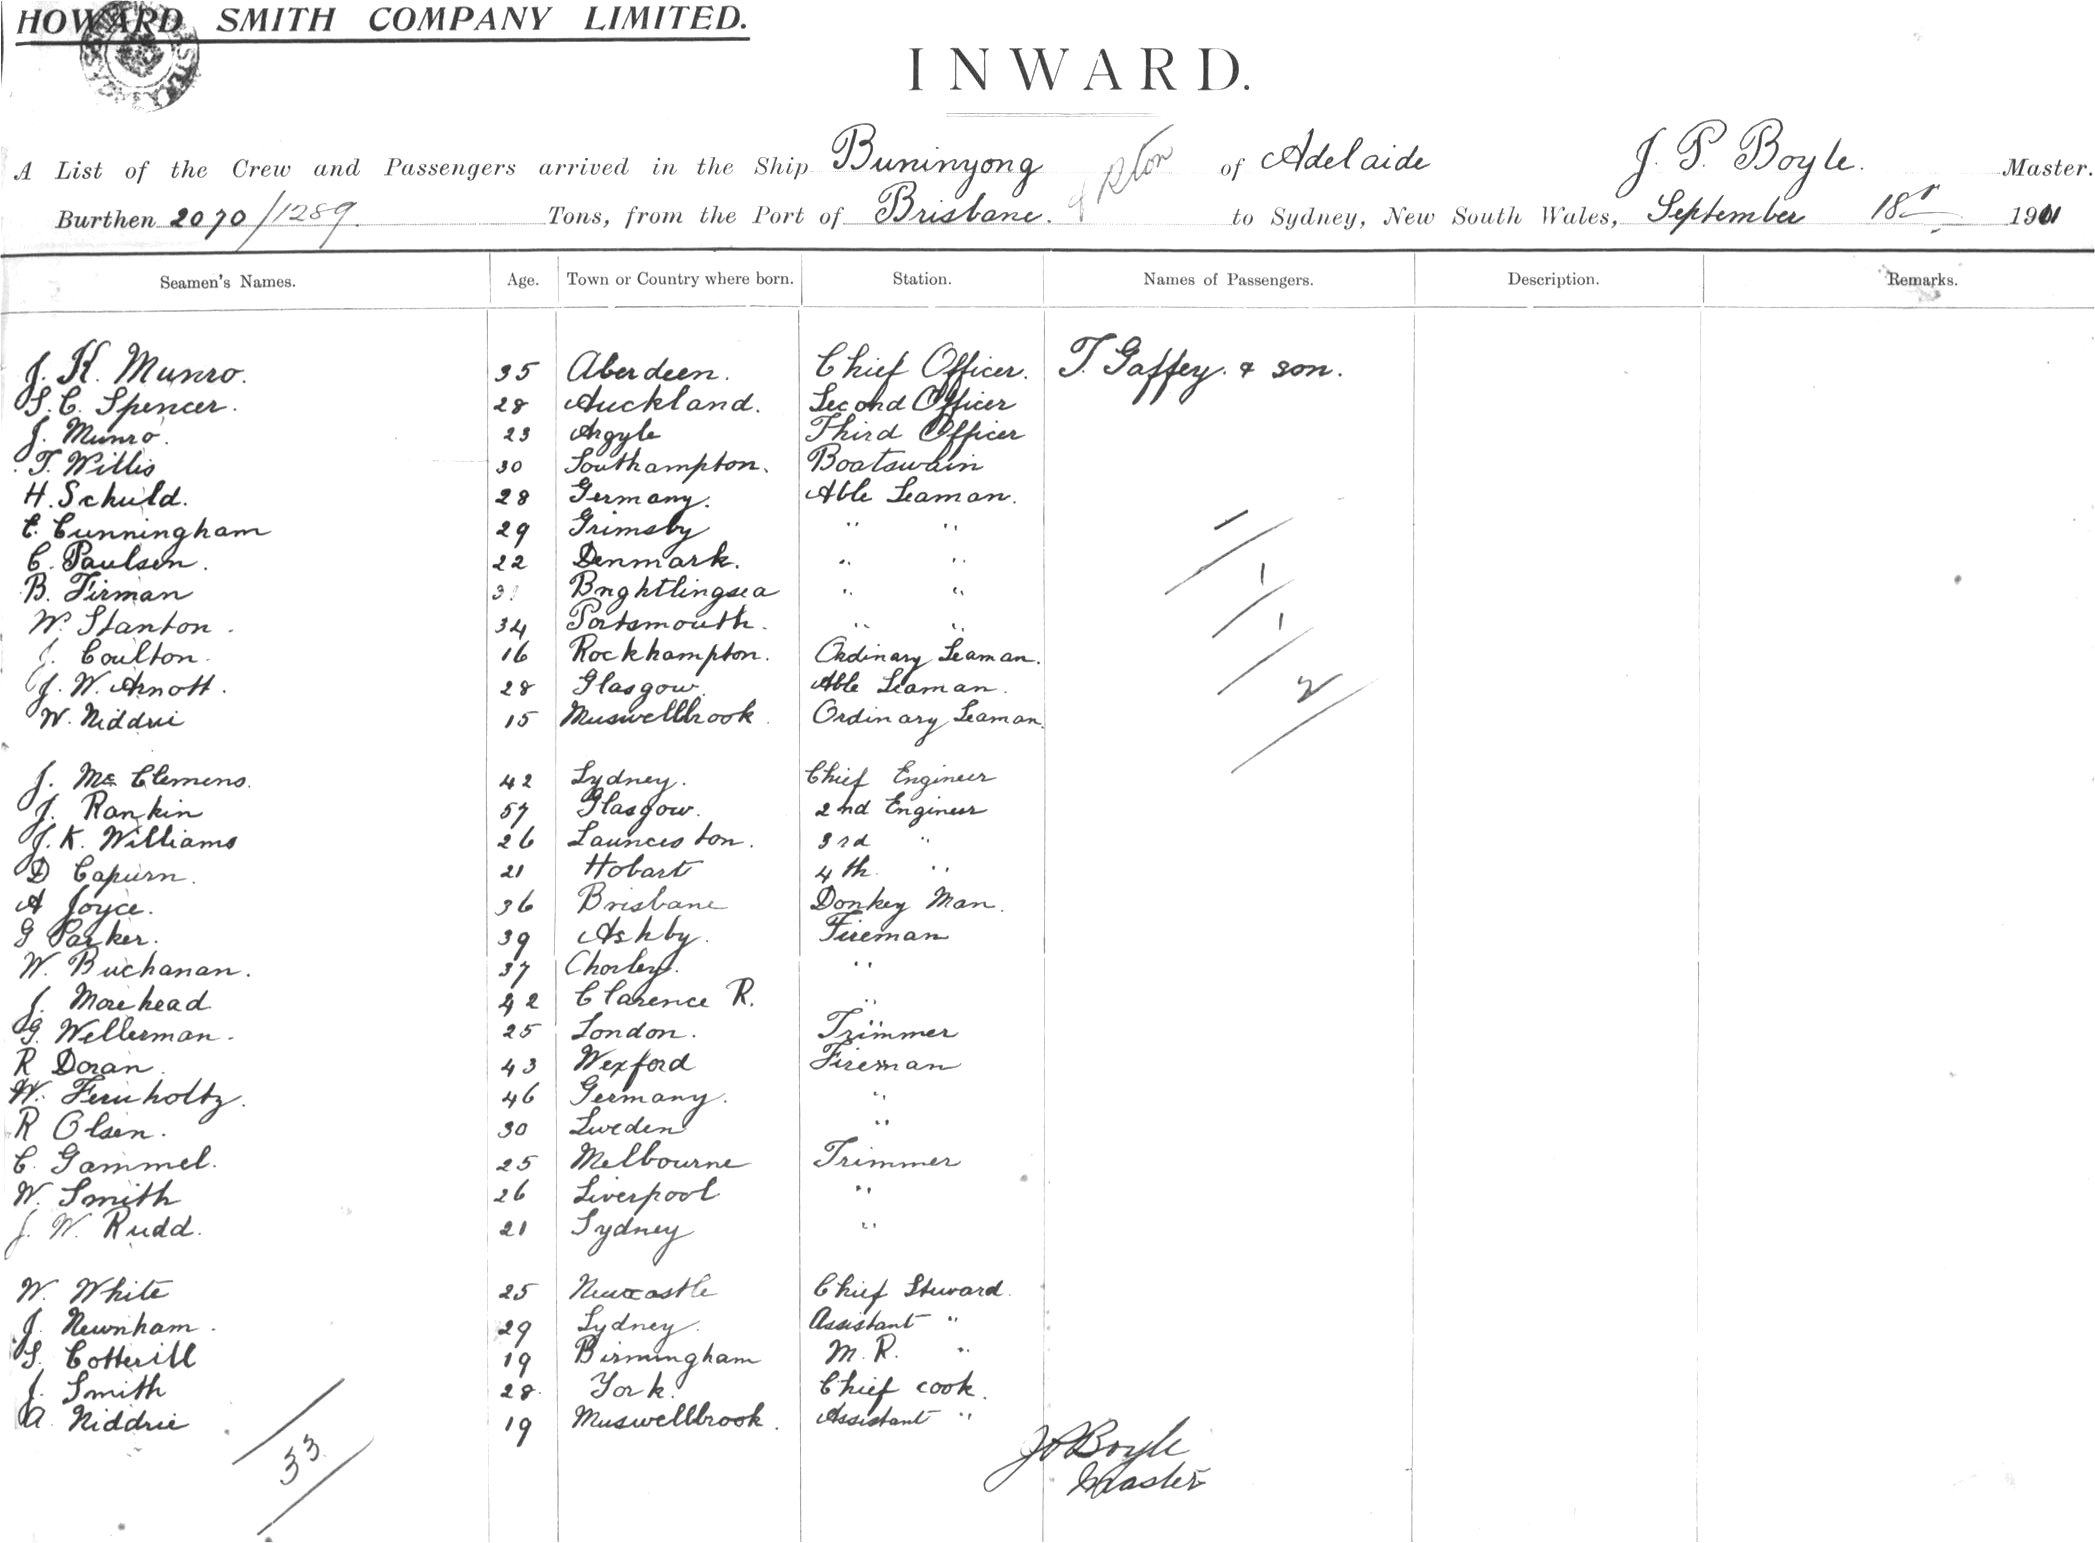 HOWARD SMITH COMPANY LIMITED.
INWARD.
A List of the Crew and Passengers arrived in the Ship Buninyong & Rton of Adelaide J. P. Boyle. Master.
Burthen 2070/1289 Tons, from the Port of Brisbane. to Sydney, New South Wales, September 18th 1901
Seamen's Names. Age. Town or Country where born. Station. Names of Passengers. Description. Remarks.
J. K. Munro. 35 Aberdeen. Chief Officer. T. Gaffey. & son.
S. C. Spencer. 28 Auckland. Second Officer
J. Munro. 23 Argyle Third Officer
T. Willis 30 Southampton. Boatswain
H. Schuld. 28 Germany. Able Seaman.
E. Cunningham 29 Grimsby " "
C. Paulsen. 22 Denmark. " "
B. Firman Brightlingsea " "
W. Stanton. 34 Portsmouth. " "
J. Coulton. 16 Rockhampton. Ordinary Seaman.
J. W. Arnott. 28 Glasgow. Able Seaman.
W. Niddrie 15 Muswellbrook. Ordinary Seaman.
J. Mc Clemens. 42 Sydney. Chief Engineer
J. Rankin 57 Glasgow. 2nd Engineer
J. K. Williams 26 Launceston. 3rd "
D Capurn. 21 Hobart 4th "
A Joyce. 36 Brisbane Donkey Man.
G Parker. 39 Ashby. Fireman
W. Buchanan. 37 Chorley. "
J. Morehead 42 Clarence R. "
G. Wellerman. 25 London. Trimmer
R Doran 43 Wexford Fireman
W. Fernholtz. 46 Germany. "
R Olsen. 30 Sweden "
C. Gammel. 25 Melbourne Trimmer
W. Smith 26 Liverpool "
J. W. Rudd. 21 Sydney "
W. White 25 Newcastle Chief Steward.
J. Newnham. 29 Sydney. Assistant "
S. Cotterill 19 Birmingham M. R. "
J. Smith 28. York. Chief cook.
A. Niddrie 19 Muswellbrook. Assistant "
33
1
1
1
2
J P Boyle
Master